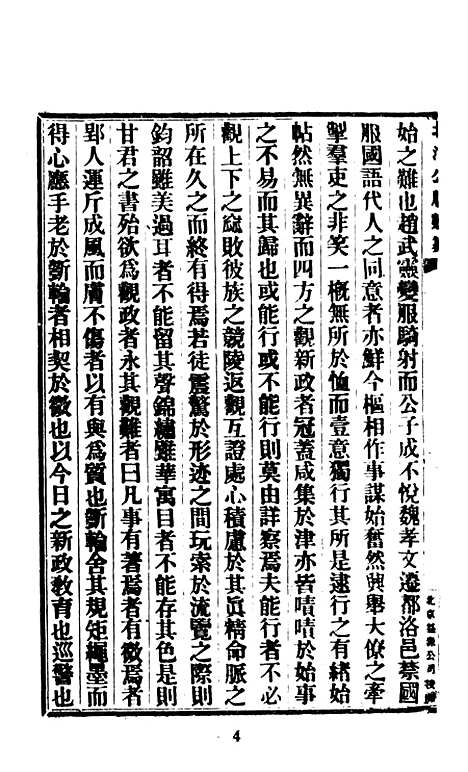 始之難也趙武靈變服騎射而公子成不悅魏孝文遷都洛邑禁國
服國語代人之同意者亦鮮今樞相作事謀始奮然興舉大僚之牽
掣羣吏之非笑一概無所於恤而壹意獨行其所是逮行之有緒始
帖然無異辭而四方之觀新政者冠蓋咸集於津亦皆嘖嘖於始事
之不易而其歸也或能行或不能行則莫由詳察焉夫能行者不必
觀上下之窳敗彼族之競陵返觀互證處心積慮於其眞精命脈之
所在久之而終有得焉若徒震驚於形迹之間玩索於流覽之際則
鈞韶雖美過耳者不能留其聲錦繡雖華寓目者不能存其色是則
甘君之書殆欲爲觀政者永其觀難者曰凡事有著焉者有微焉者
郢人運斤成風而膚不傷者以有與爲質也斲輪舍其規矩繩墨而
得心應手老於斲輪者相契於微也以今日之新政敎育也巡警也
4